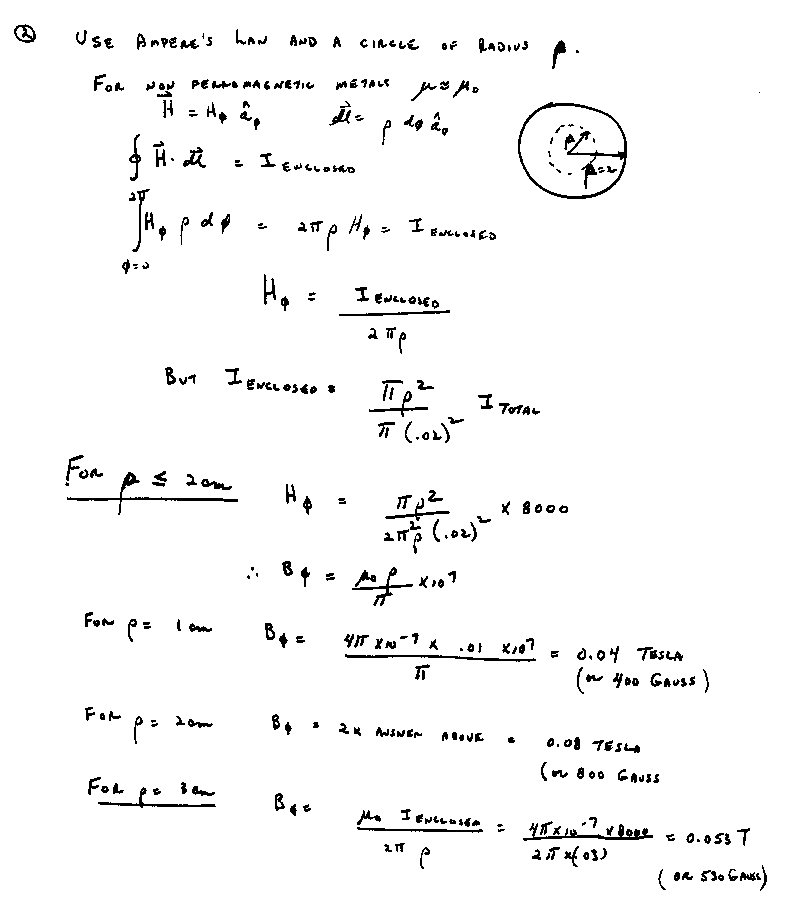 ② USE AMPERE'S LAW AND A CIRCLE OF RADIUS ρ.
FOR NON FERROMAGNETIC METALS μ ≈ μ₀
H⃗ = H_ϕ â_ϕ    dl⃗ = ρ dϕ â_ϕ
ρ
ρ=2
∮ H⃗ · dl⃗ = I ENCLOSED
∫_{ϕ=0}^{2π} H_ϕ ρ dϕ = 2πρ H_ϕ = I ENCLOSED
H_ϕ = I ENCLOSED / 2πρ
BUT I ENCLOSED = πρ² / π(.02)² I TOTAL
FOR ρ ≤ 2cm    H_ϕ = πρ² / 2π²ρ(.02)² × 8000
∴ B_ϕ = μ₀ρ / π × 10⁷
FOR ρ = 1cm    B_ϕ = 4π×10⁻⁷ × .01 × 10⁷ / π = 0.04 TESLA
(OR 400 GAUSS)
FOR ρ = 2cm    B_ϕ = 2× ANSWER ABOVE = 0.08 TESLA
(OR 800 GAUSS
FOR ρ = 3cm    B_ϕ = μ₀ I ENCLOSED / 2πρ = 4π×10⁻⁷×8000 / 2π×(.03) = 0.053 T
(OR 530 GAUSS)